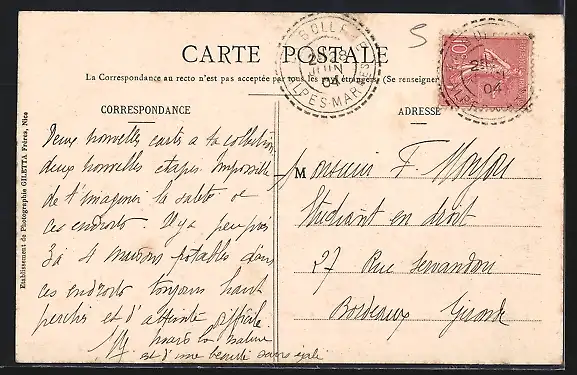 CARTE POSTALE
La Correspondance au recto n'est pas acceptée par tous les pays étrangers (Se renseigner
CORRESPONDANCE
ADRESSE
Deux nouvelles cartes a ta collection,
deux nouvelles étapes. Impossible
de t'imaginer la saleté de
ces endroits. Il y a peu près
3 à 4 maisons potables dans
ces endroits toujours haut
perchés et d'atteinte difficile
mais la nature
est d'une beauté sans égale
Monsieur F.
Etudiant en droit
27 Rue Servandoni
Bordeaux Gironde
Etablissement de Photographie GILETTA Frères, Nice
JUIN
04
ALPES-MARMES
10
04
5